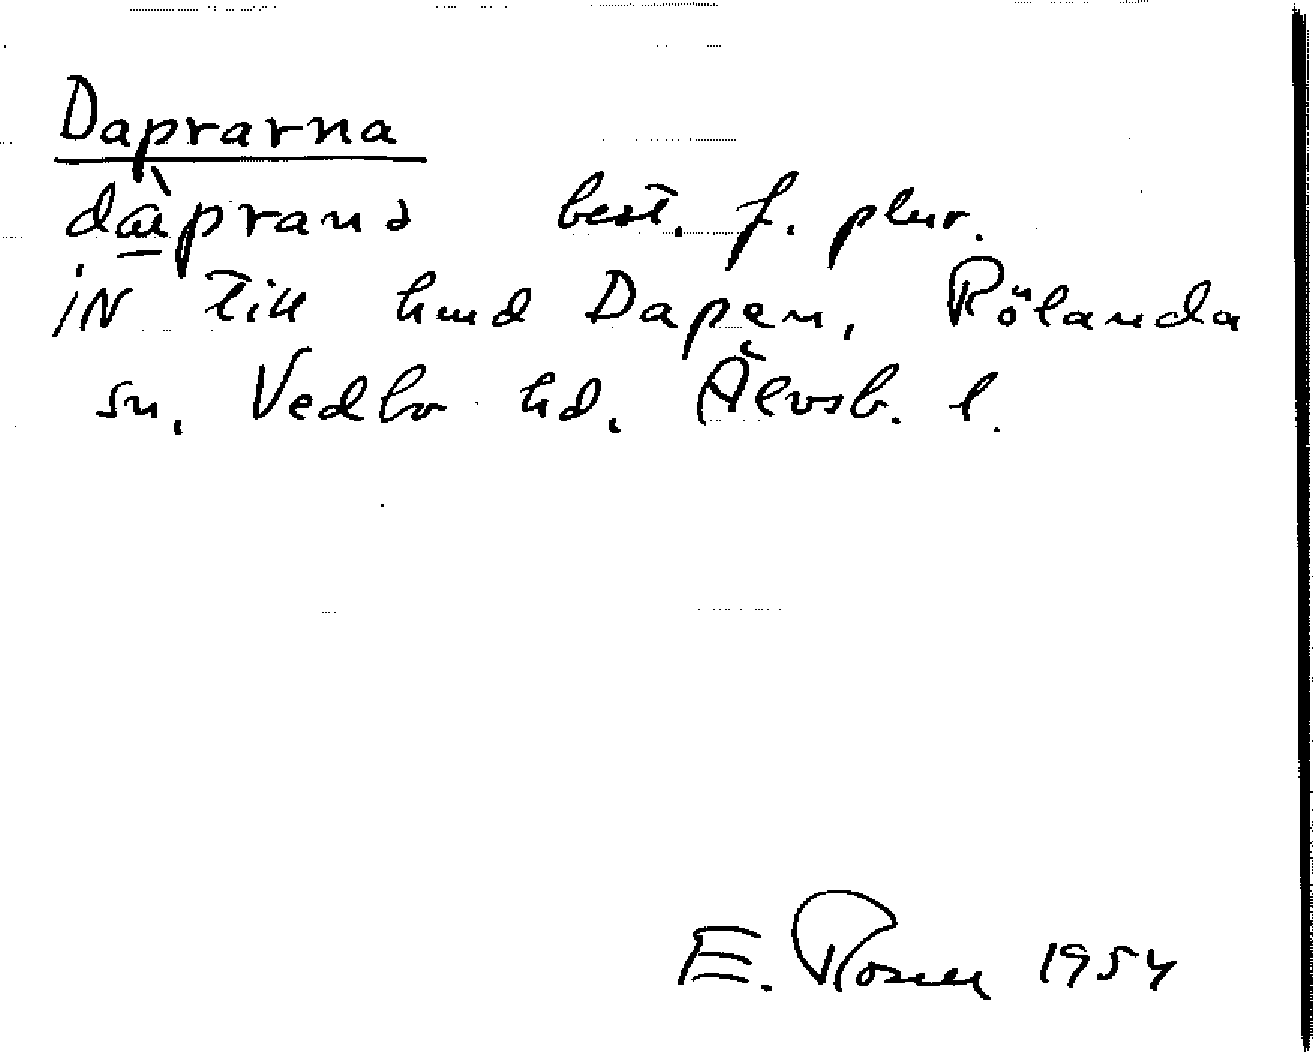 Daprarna
dàpranə best. f. plur.
iN till hmd Dapen, Rölanda
sn, Vedbo hd, Älvsb. l.
E. Rosell 1954